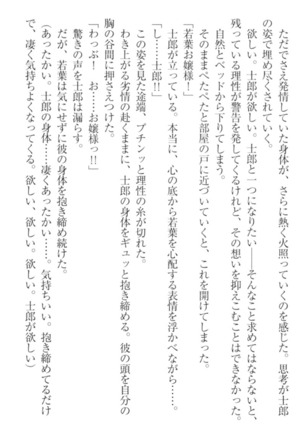 ただでさえ発情していた身体が、さらに熱く火照っていくのを感じた。思考が士郎
の姿で埋め尽くされていく。
欲しい。士郎が欲しい。士郎と一つになりたい――そんなこと求めてはならないと、
残っている理性が警告を発してくるけれど、その想いを抑えこむことはできなかった。
自然とベッドから下りてしまう。
そのままぺたぺたと部屋の戸に近づいていくと、これを開けてしまった。
「若葉お嬢様！」
士郎が立っている。本当に、心の底から若葉を心配する表情を浮かべながら……。
この姿を見た途端、プチンッと理性の糸が切れた。
「士郎……士郎‼」
わき上がる劣情の赴くままに、士郎の身体をギュッと抱き締める。彼の頭を自分の
胸の谷間に押さえつけた。
「わっぷ！　お……お嬢様っ‼」
驚きの声を士郎は漏らす。
だが、若葉は気にせずに彼の身体を抱き締め続けた。
（あったかい。士郎の身体……凄くあったかい……。気持ちいい。抱き締めてるだけ
で、凄く気持ちよくなってくる。欲しい、欲しい。欲しい。士郎が欲しい）